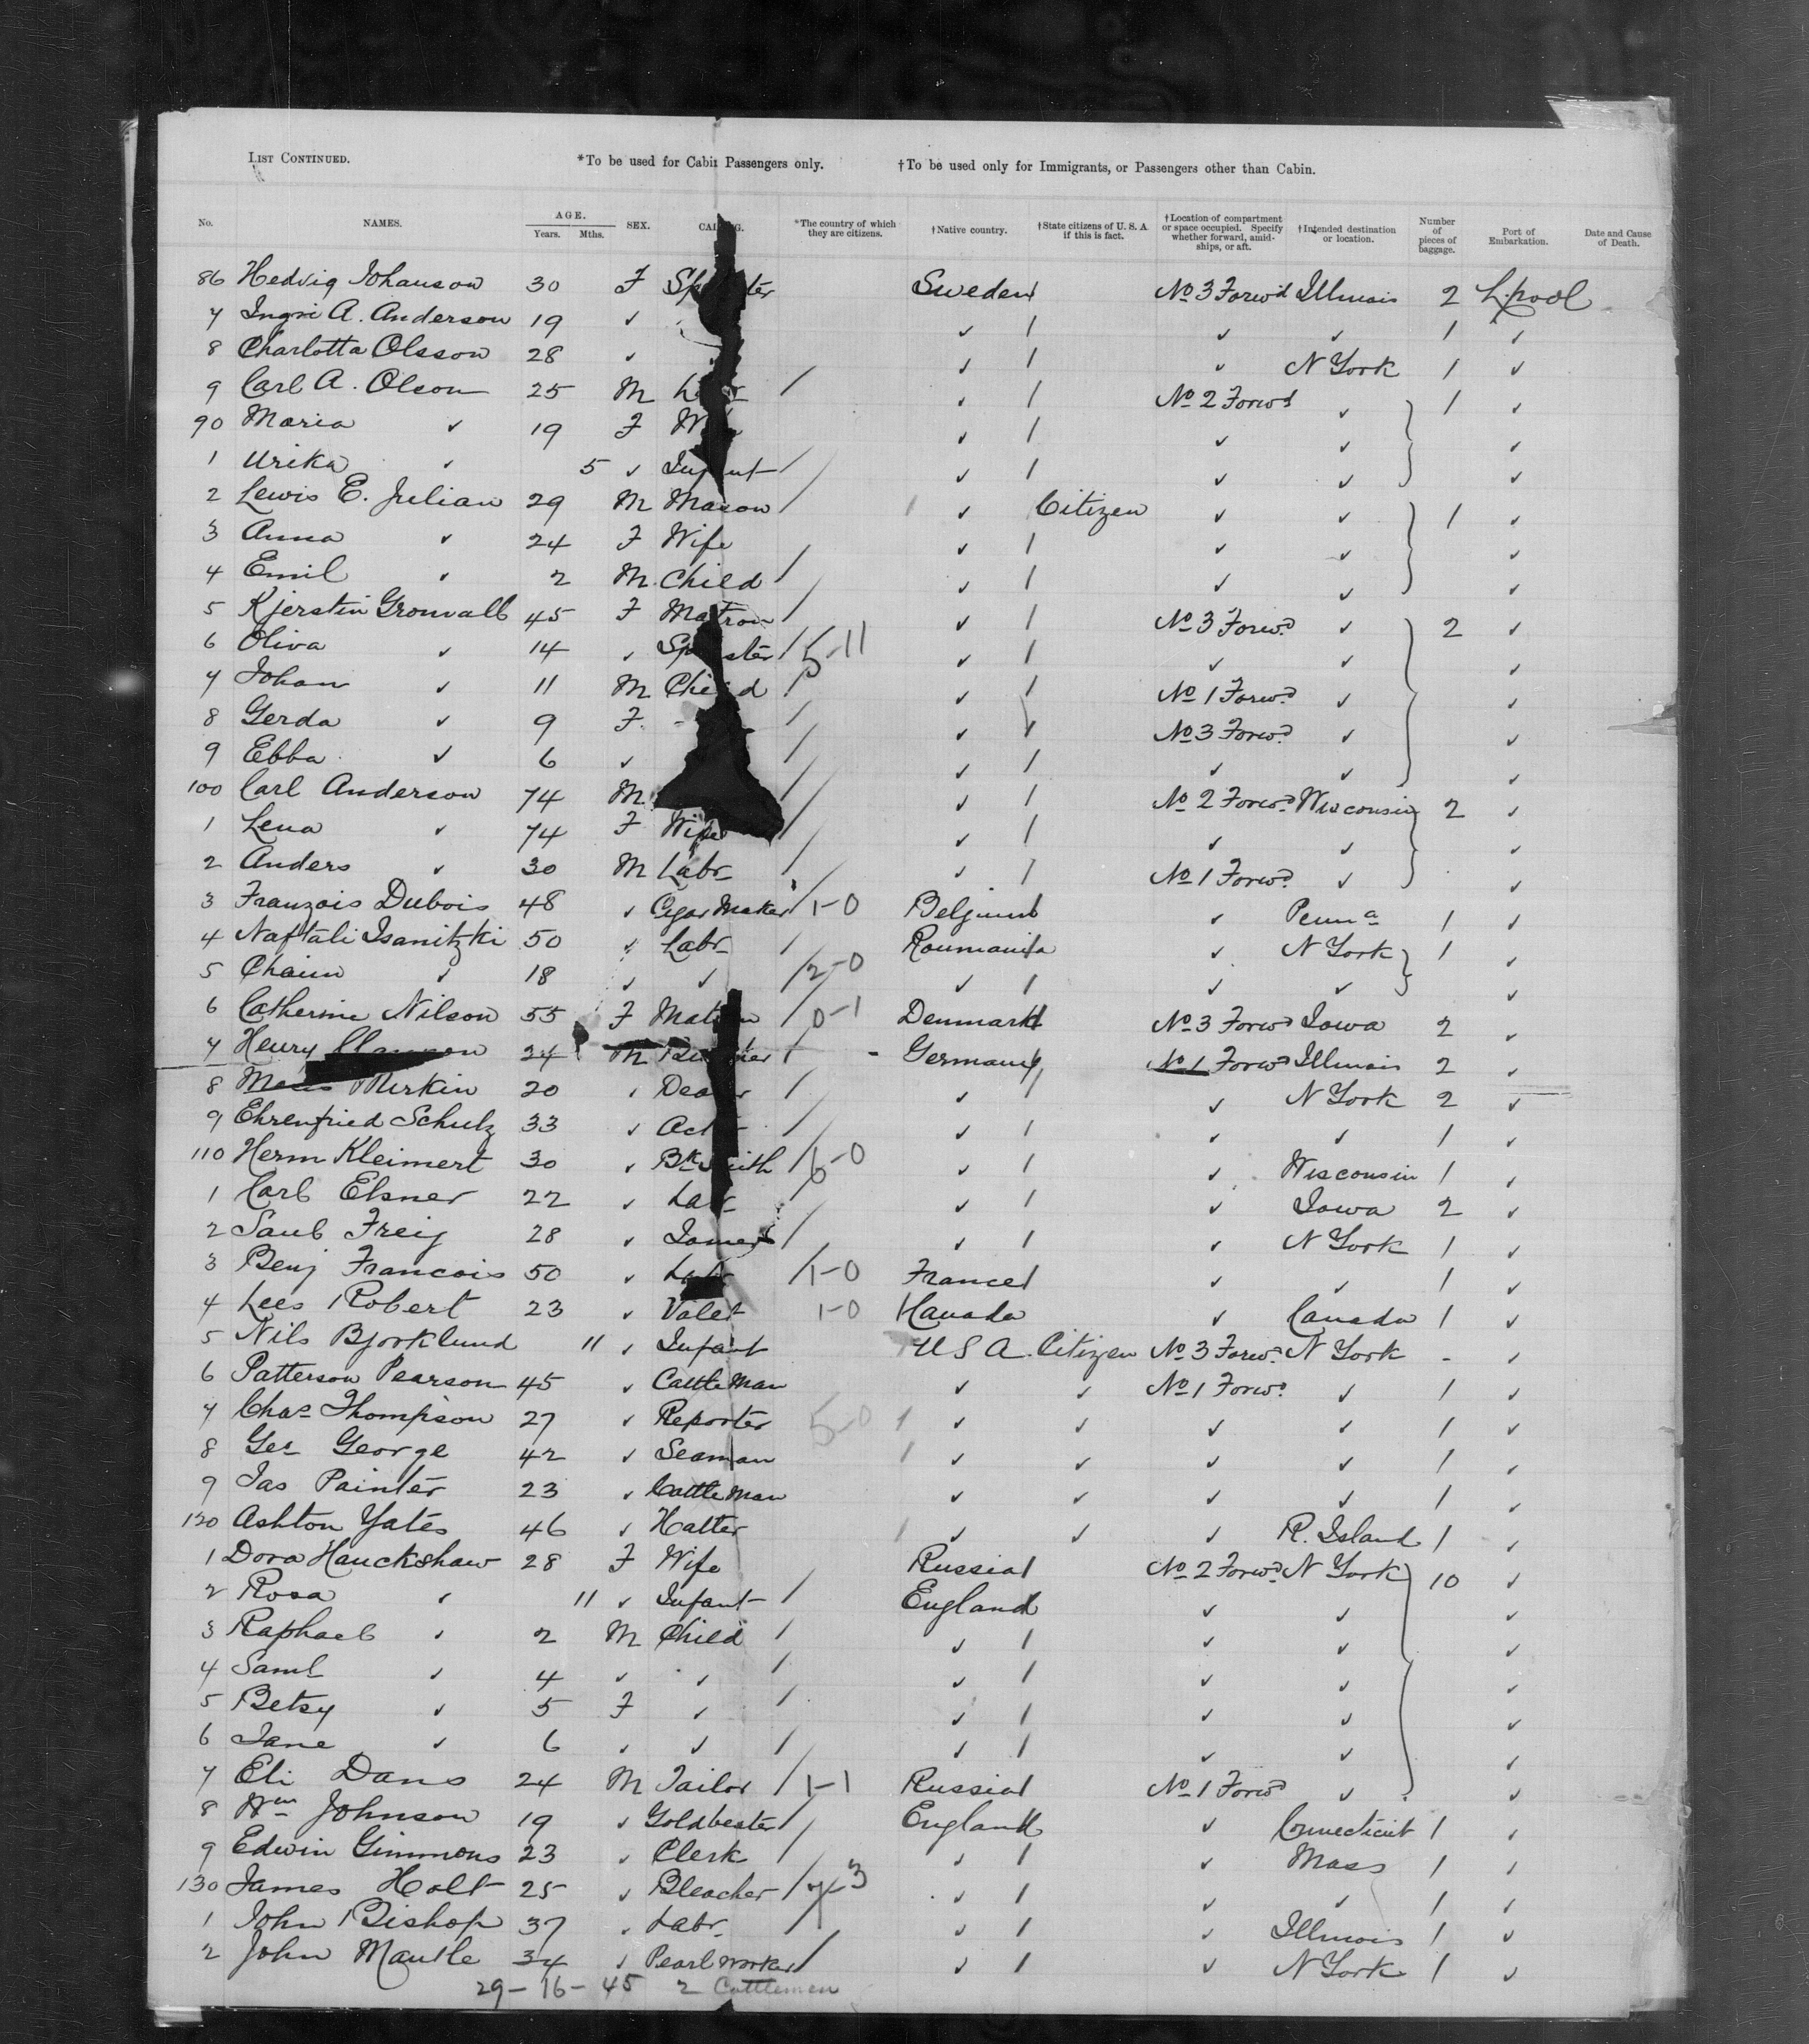 LIST CONTINUED. *To be used for Cabin Passengers only. †To be used only for Immigrants, or Passengers other than Cabin.
No. NAMES. AGE. Years. Mths. SEX. CAL G. *The country of which they are citizens. †Native country. †State citizens of U. S. A. if this is fact. †Location of compartment or space occupied. Specify whether forward, amidships, or aft. †Intended destination or location. Number of pieces of baggage. Port of Embarkation. Date and Cause of Death.
86 Hedvig Johanson 30 F Sp ster Sweden No 3 Forw'd Illinois 2 L.pool
7 Ingri A. Anderson 19 ✓ ✓ / ✓ ✓ 1 ✓
8 Charlotta Olsson 28 ✓ ✓ / ✓ N York 1 ✓
9 Carl A. Olson 25 M L r / ✓ / No 2 Forwd ✓ 1 ✓
90 Maria ✓ 19 F W ✓ / ✓ ✓ ✓
1 Urika ✓ 5 ✓ Infant / ✓ / ✓ ✓ ✓
2 Lewis E. Julian 29 M Mason / ✓ Citizen ✓ ✓ 1 ✓
3 Anna ✓ 24 F Wife ✓ / ✓ ✓ ✓
4 Emil ✓ 2 M. Child / ✓ / ✓ ✓ ✓
5 Kjerstin Gronvall 45 F Matron / ✓ / No 3 Forwd ✓ 2 ✓
6 Oliva ✓ 14 ✓ Sp ster / 5-11 ✓ / ✓ ✓ ✓
7 Johan ✓ 11 M Child / ✓ / No 1 Forwd ✓ ✓
8 Gerda ✓ 9 F. / ✓ ✓ No 3 Forwd ✓ ✓
9 Ebba ✓ 6 ✓ / ✓ / ✓ ✓ ✓
100 Carl Anderson 74 M / ✓ / No 2 Forwd Wisconsin 2 ✓
1 Lena ✓ 74 F Wife / ✓ / ✓ ✓ ✓
2 Anders ✓ 30 M Labr / ✓ / No 1 Forwd ✓ ✓
3 Franzois Dubois 48 ✓ Cigar Maker / 1-0 Belgium ✓ Penna 1 ✓
4 Naftali Isanitzki 50 ✓ Labr / Roumania ✓ N York 1 ✓
5 Chaim ✓ 18 ✓ ✓ / 2-0 ✓ / ✓ ✓ ✓
6 Catherine Nilson 55 F Mat n / 0-1 Denmark No 3 Forwd Iowa 2 ✓
7 Henry 24 M / Germany No 1 Forwd Illinois 2 ✓
8 Mirkin 20 ✓ Dea r / ✓ / ✓ N York 2 ✓
9 Ehrenfried Schulz 33 ✓ Act / ✓ / ✓ ✓ 1 ✓
110 Herm Kleimert 30 ✓ Bk smith / 6-0 ✓ / ✓ Wisconsin 1 ✓
1 Carl Elsner 22 ✓ Labr / ✓ / ✓ Iowa 2 ✓
2 Saul Freig 28 ✓ / ✓ / ✓ N York 1 ✓
3 Benj Francois 50 ✓ Labr / 1-0 France ✓ ✓ 1 ✓
4 Lees Robert 23 ✓ Valet 1-0 Canada ✓ Canada 1 ✓
5 Nils Bjorklund 11 ✓ Infant U S A. Citizen No 3 Forwd N York - ✓
6 Patterson Pearson 45 ✓ Cattle Man ✓ ✓ No 1 Forwd ✓ 1 ✓
7 Chas Thompson 27 ✓ Reporter 5-0 / ✓ ✓ ✓ ✓ 1 ✓
8 Geo George 42 ✓ Seaman / ✓ ✓ ✓ ✓ 1 ✓
9 Jas Painter 23 ✓ Cattle Man ✓ ✓ ✓ ✓ 1 ✓
120 Ashton Yates 46 ✓ Hatter / ✓ ✓ ✓ R. Island 1 ✓
1 Dora Hauckshaw 28 F Wife Russia No 2 Forwd N York 10 ✓
2 Rosa ✓ 11 ✓ Infant / England ✓ ✓ ✓
3 Raphael ✓ 2 M Child / ✓ / ✓ ✓ ✓
4 Saml ✓ 4 ✓ ✓ / ✓ / ✓ ✓ ✓
5 Betsy ✓ 5 F ✓ / ✓ / ✓ ✓ ✓
6 Jane ✓ 6 ✓ ✓ / ✓ / ✓ ✓ ✓
7 Eli Dans 24 M Tailor / 1-1 Russia No 1 Forwd ✓ ✓
8 Wm Johnson 19 ✓ Goldbeater / England ✓ Connecticut 1 ✓
9 Edwin Gimmons 23 ✓ Clerk / ✓ / ✓ Mass 1 ✓
130 James Holt 25 ✓ Bleacher / 7-3 ✓ / ✓ ✓ 1 ✓
1 John Bishop 37 ✓ Labr. / ✓ / ✓ Illinois 1 ✓
2 John Mantle 34 ✓ Pearl worker / ✓ / ✓ N York 1 ✓
29-16-45 2 Cattlemen